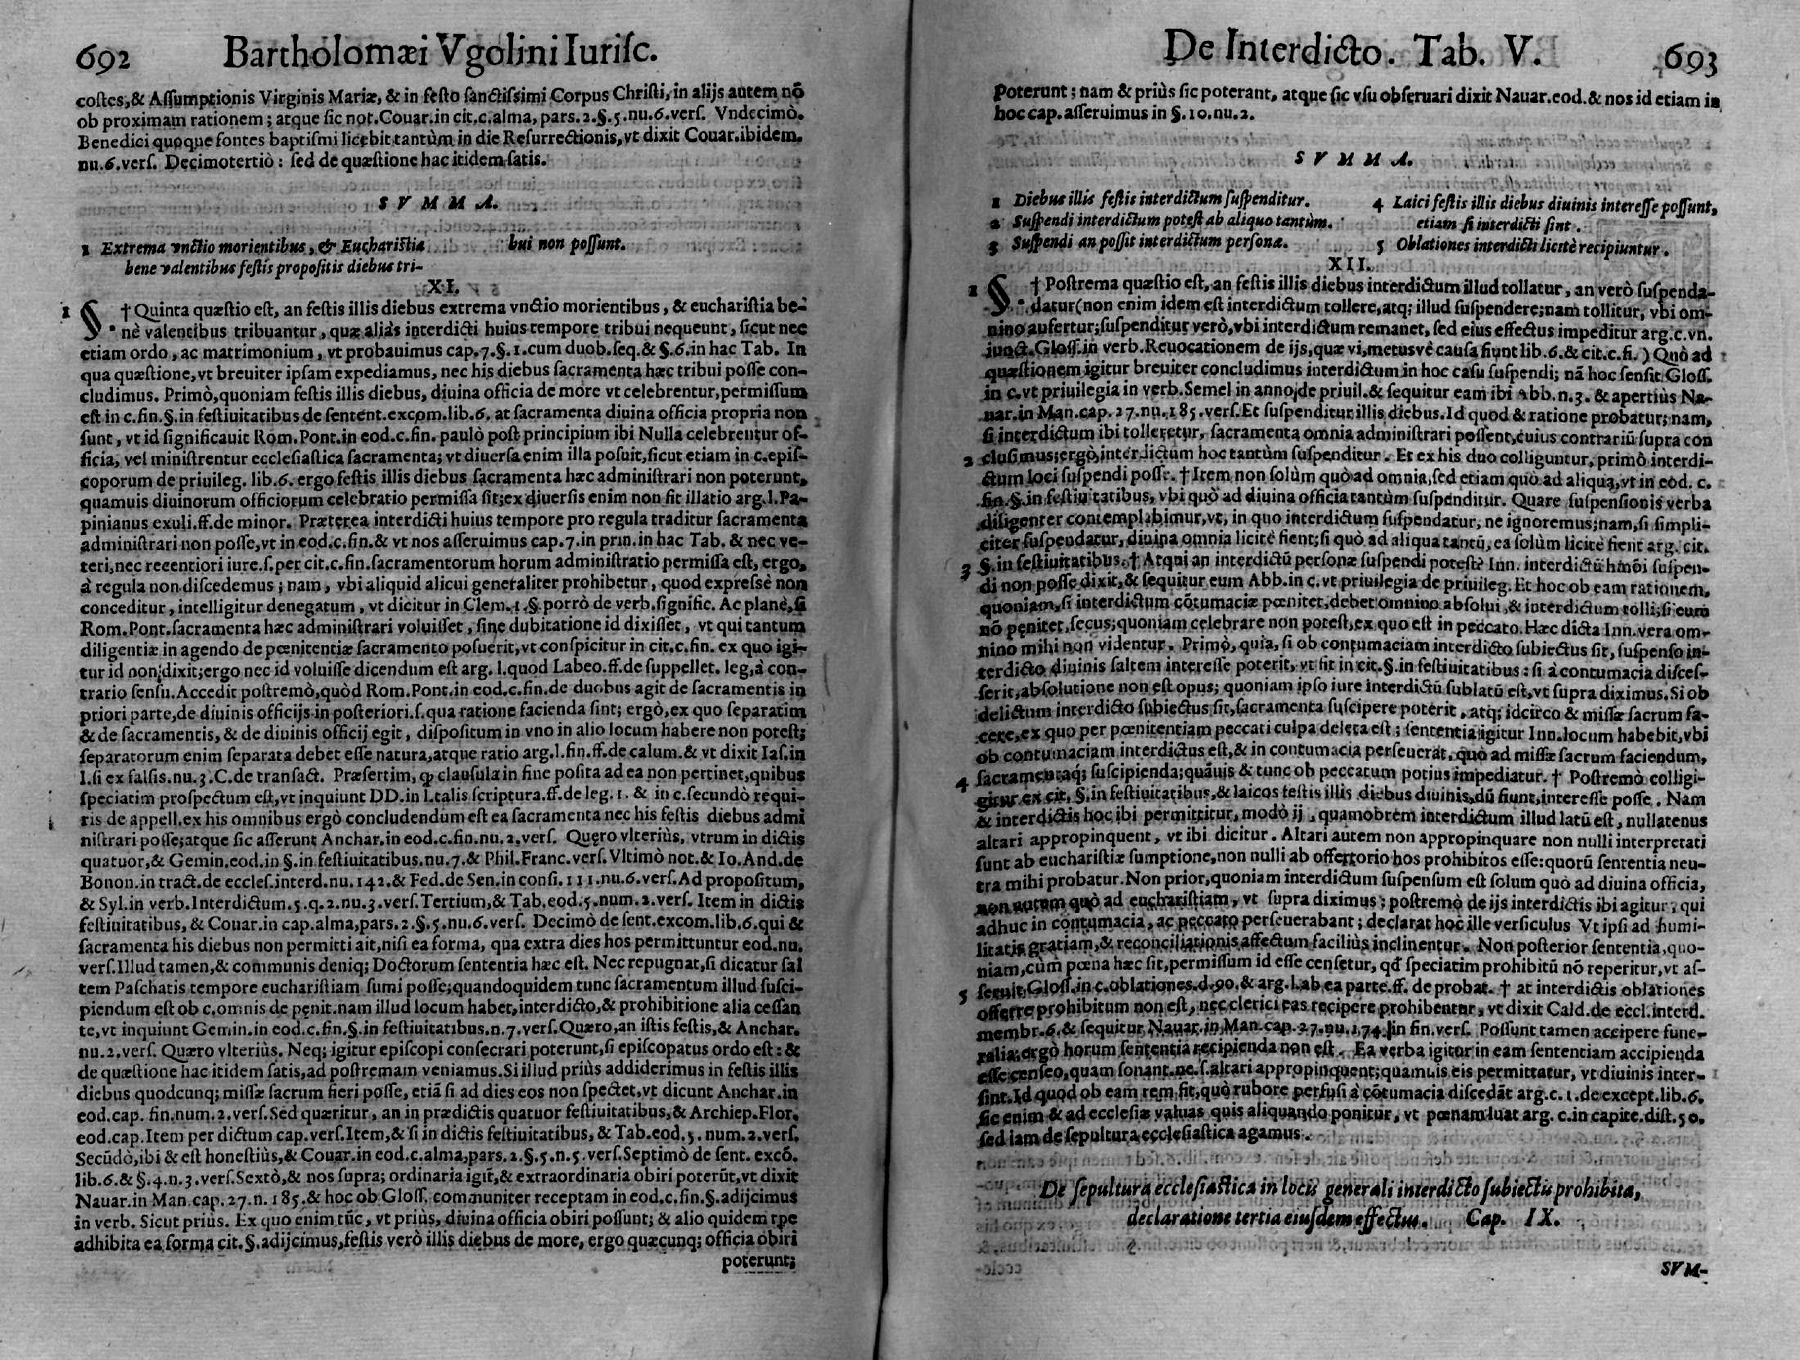 692 Bartholomæi Vgolini Iurisc.
costes, & Assumptionis Virginis Mariæ, & in festo sanctissimi Corpus Christi, in alijs autem nō
ob proximam rationem; atque sic not. Couar. in cit. c. alma, pars. 2. §. 5. nu. 6. vers. Vndecimò.
Benedici quoque fontes baptismi licebit tantùm in die Resurrectionis, vt dixit Couar. ibidem.
nu. 6. vers. Decimotertiò: sed de quæstione hac itidem satis.
SVMMA.
1 Extrema vnctio morientibus, & Eucharistia
bene valentibus festis propositis diebus tri-
bui non possunt.
XI.
1 §. † Quinta quæstio est, an festis illis diebus extrema vnctio morientibus, & eucharistia be-
nè valentibus tribuantur, quæ aliàs interdicti huius tempore tribui nequeunt, sicut nec
etiam ordo, ac matrimonium, vt probauimus cap. 7. §. 1. cum duob. seq. & §. 6. in hac Tab. In
qua quæstione, vt breuiter ipsam expediamus, nec his diebus sacramenta hæc tribui posse con-
cludimus. Primò, quoniam festis illis diebus, diuina officia de more vt celebrentur, permissum
est in c. fin. §. in festiuitatibus de sentent. excom. lib. 6. at sacramenta diuina officia propria non
sunt, vt id significauit Rom. Pont. in eod. c. fin. paulò post principium ibi Nulla celebrentur of-
ficia, vel ministrentur ecclesiastica sacramenta; vt diuersa enim illa posuit, sicut etiam in c. epis-
coporum de priuileg. lib. 6. ergo festis illis diebus sacramenta hæc administrari non poterunt,
quamuis diuinorum officiorum celebratio permissa sit; ex diuersis enim non fit illatio arg. l. Pa-
pinianus exuli. ff. de minor. Præterea interdicti huius tempore pro regula traditur sacramenta
administrari non posse, vt in eod. c. fin. & vt nos asseruimus cap. 7. in prin. in hac Tab. & nec ve-
teri, nec recentiori iure. s. per cit. c. fin. sacramentorum horum administratio permissa est, ergo,
à regula non discedemus; nam, vbi aliquid alicui generaliter prohibetur, quod expressè non
conceditur, intelligitur denegatum, vt dicitur in Clem. 1. §. porrò de verb. signific. Ac planè, si
Rom. Pont. sacramenta hæc administrari voluisset, sine dubitatione id dixisset, vt qui tantum
diligentiæ in agendo de pœnitentiæ sacramento posuerit, vt conspicitur in cit. c. fin. ex quo igi-
tur id non dixit; ergo nec id voluisse dicendum est arg. l. quod Labeo. ff. de suppellet. leg, à con-
trario sensu. Accedit postremò, quòd Rom. Pont. in eod. c. fin. de duobus agit de sacramentis in
priori parte, de diuinis officijs in posteriori. s. qua ratione facienda sint; ergò, ex quo separatim
& de sacramentis, & de diuinis officij egit, dispositum in vno in alio locum habere non potest;
separatorum enim separata debet esse natura, atque ratio arg. l. fin. ff. de calum. & vt dixit Ias. in
l. si ex falsis. nu. 3. C. de transact. Præsertim, ꝙ clausula in fine posita ad ea non pertinet, quibus
speciatim prospectum est, vt inquiunt DD. in l. talis scriptura. ff. de leg. 1. & in c. secundò requi-
ris de appell. ex his omnibus ergò concludendum est ea sacramenta nec his festis diebus admi
nistrari posse; atque sic asserunt Anchar. in eod. c. fin. nu. 2. vers. Quęro vlteriùs, vtrum in dictis
quatuor, & Gemin. eod. in §. in festiuitatibus. nu. 7. & Phil. Franc. vers. Vltimò not. & Io. And. de
Bonon. in tract. de eccles. interd. nu. 142. & Fed. de Sen. in consi. 111. nu. 6. vers. Ad propositum,
& Syl. in verb. Interdictum. 5. q. 2. nu. 3. vers. Tertium, & Tab. eod. 5. num. 2. vers. Item in dictis
festiuitatibus, & Couar. in cap. alma, pars. 2. §. 5. nu. 6. vers. Decimò de sent. excom. lib. 6. qui &
sacramenta his diebus non permitti ait, nisi ea forma, qua extra dies hos permittuntur eod. nu.
vers. Illud tamen, & communis deniq; Doctorum sententia hæc est. Nec repugnat, si dicatur sal
tem Paschatis tempore eucharistiam sumi posse; quandoquidem tunc sacramentum illud susci-
piendum est ob c. omnis de pęnit. nam illud locum habet, interdicto, & prohibitione alia cessan
te, vt inquiunt Gemin. in eod. c. fin. §. in festiuitatibus. n. 7. vers. Quæro, an istis festis, & Anchar.
nu. 2. vers. Quæro vlteriùs. Neq; igitur episcopi consecrari poterunt, si episcopatus ordo est: &
de quæstione hac itidem satis, ad postremam veniamus. Si illud prius addiderimus in festis illis
diebus quodcunq; missæ sacrum fieri posse, etiā si ad dies eos non spectet, vt dicunt Anchar. in
eod. cap. fin. num. 2. vers. Sed quæritur, an in prædictis quatuor festiuitatibus, & Archiep. Flor.
eod. cap. Item per dictum cap. vers. Item, & si in dictis festiuitatibus, & Tab. eod. 5. num. 2. vers.
Secūdò, ibi & est honestiùs, & Couar. in eod. c. alma, pars. 2. §. 5. n. 5. vers. Septimò de sent. excō.
lib. 6. & §. 4. n. 3. vers. Sextò, & nos supra; ordinaria igit́, & extraordinaria obiri poterūt, vt dixit
Nauar. in Man. cap. 27. n. 185. & hoc ob Gloss. communiter receptam in eod. c. fin. §. adijcimus
in verb. Sicut prius. Ex quo enim tūc, vt prius, diuina officia obiri possunt; & alio quidem tpe
adhibita ea forma cit. §. adijcimus, festis verò illis diebus de more, ergo quæcunq; officia obiri
poterunt;
De Interdicto. Tab. V. 693
Poterunt; nam & priùs sic poterant, atque sic vsu obseruari dixit Nauar. eod. & nos id etiam in
hoc cap. asseruimus in §. 10. nu. 2.
SVMMA.
1 Diebus illis festis interdictum suspenditur.
2 Suspendi interdictum potest ab aliquo tantùm.
3 Suspendi an possit interdictum personæ.
4 Laici festis illis diebus diuinis interesse possunt,
etiam si interdicti sint.
5 Oblationes interdicti licitè recipiuntur.
XII.
1 §. † Postrema quæstio est, an festis illis diebus interdictum illud tollatur, an verò suspenda-
datur (non enim idem est interdictum tollere, atq; illud suspendere; nam tollitur, vbi om-
nino aufertur; suspenditur verò, vbi interdictum remanet, sed eius effectus impeditur arg. c. vn.
iunct. Gloss. in verb. Reuocationem de ijs, quæ vi, metusvè causa fiunt lib. 6. & cit. c. fi.) Quò ad
quæstionem igitur breuiter concludimus interdictum in hoc casu suspendi; nā hoc sensit Gloss.
in c. vt priuilegia in verb. Semel in anno, de priuil. & sequitur eam ibi Abb. n. 3. & apertiùs Na-
uar. in Man. cap. 27. nu. 185. vers. Et suspenditur illis diebus. Id quod & ratione probatur; nam,
si interdictum ibi tolleretur, sacramenta omnia administrari possent, cuius contrariū supra con
2 clusimus; ergò, interdictum hoc tantùm suspenditur. Et ex his duo colliguntur, primò interdi-
ctum loci suspendi posse. † Item non solùm quò ad omnia, sed etiam quò ad aliqua, vt in eod. c.
fin. §. in festiuitatibus, vbi quò ad diuina officia tantùm suspenditur. Quare suspensionis verba
diligenter contemplabimur, vt, in quo interdictum suspendatur, ne ignoremus; nam, si simpli-
citer suspendatur, diuina omnia licitè fient; si quò ad aliqua tantū, ea solùm licitè fient arg. cit.
3 §. in festiuitatibus. † Atqui an interdictū personæ suspendi potest? Inn. interdictū hmōi suspen-
di non posse dixit, & sequitur eum Abb. in c. vt priuilegia de priuileg. Et hoc ob eam rationem,
quoniam, si interdictum cōtumaciæ pœnitet, debet omnino absolui, & interdictum tolli; si cum
nō pęnitet, secus; quoniam celebrare non potest, ex quo est in peccato. Hæc dicta Inn. vera om-
nino mihi non videntur. Primò, quia, si ob contumaciam interdicto subiectus sit, suspenso in-
terdicto diuinis saltem interesse poterit, vt fit in cit. §. in festiuitatibus: si à contumacia disces-
serit, absolutione non est opus; quoniam ipso iure interdictū sublatū est, vt supra diximus. Si ob
delictum interdicto subiectus sit, sacramenta suscipere poterit, atq; idcirco & missæ sacrum fa-
cere, ex quo per pœnitentiam peccati culpa deleta est; sententia igitur Inn. locum habebit, vbi
ob contumaciam interdictus est, & in contumacia perseuerat, quò ad missæ sacrum faciendum,
4 sacramentaq; suscipienda; quāuis & tunc ob peccatum potius impediatur. † Postremò colligi-
gitur ex cit. §. in festiuitatibus, & laicos festis illis diebus diuinis, dū fiunt, interesse posse. Nam
& interdictis hoc ibi permittitur, modò ij, quamobrem interdictum illud latū est, nullatenus
altari appropinquent, vt ibi dicitur. Altari autem non appropinquare non nulli interpretati
sunt ab eucharistiæ sumptione, non nulli ab offertorio hos prohibitos esse: quorū sententia neu-
tra mihi probatur. Non prior, quoniam interdictum suspensum est solum quò ad diuina officia,
non autem quò ad eucharistiam, vt supra diximus; postremò de ijs interdictis ibi agitur, qui
adhuc in contumacia, ac peccato perseuerabant; declarat hoc ille versiculus Vt ipsi ad humi-
litatis gratiam, & reconciliationis affectum faciliùs inclinentur. Non posterior sententia, quo-
niam, cùm pœna hæc sit, permissum id esse censetur, qđ speciatim prohibitū nō reperitur, vt as-
5 seruit Gloss. in c. oblationes. d. 90. & arg. l. ab ea parte. ff. de probat. † at interdictis oblationes
offerre prohibitum non est, nec clerici eas recipere prohibentur, vt dixit Cald. de eccl. interd.
membr. 6. & sequitur Nauar. in Man. cap. 27. nu. 174. in fin. vers. Possunt tamen accipere fune-
ralia; ergò horum sententia recipienda non est. Ea verba igitur in eam sententiam accipienda
esse censeo, quam sonant. ne. s. altari appropinquent; quamuis eis permittatur, vt diuinis inter-
sint. Id quod ob eam rem fit, quò rubore perfusi à cōtumacia discedāt arg. c. 1. de except. lib. 6.
sic enim & ad ecclesiæ valuas quis aliquando ponitur, vt pœnam luat arg. c. in capite. dist. 50.
sed iam de sepultura ecclesiastica agamus.
De sepultura ecclesiastica in locis generali interdicto subiectis prohibita,
declaratione tertia eiusdem effectus. Cap. IX.
SVM-